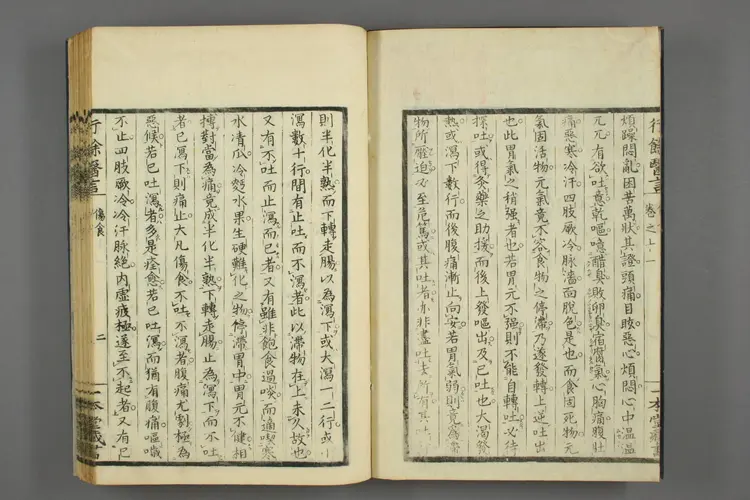 行餘醫言 卷之七 一 一本堂藏書
煩躁悶亂困苦萬狀其證頭痛目眩惡心煩悶心中温温
兀兀有欲吐意乾嘔噫醋臭敗卵臭宿腐氣心胸痛腹壯
痛惡寒冷汗四肢厥冷脉濇而脱色是也而食固死物元
氣固活物元氣竟不容食物之停滯乃遂發轉上逆吐出
也此胃氣之稍强者也若胃元不强則不能自轉吐必待
探吐或得灸藥之助援而後上發嘔出及已吐也大渇發
熱或瀉下數行而後腹痛漸止向安若胃氣弱則竟為
物所壓迫必至危篤或其吐者亦非盡吐
則半化半熟而下轉走腸以為瀉下或大瀉一二行或
瀉數十行間有止吐而不瀉者此以滯物在上未久故也
又有不吐而止瀉而已者又有雖非飽食過啖而適喫寒
水清瓜冷麪水果生硬難化之物停滯胃中胃元不健相
搏對當為痛竟成半化半熟下轉走腸止為瀉下而不吐
者已瀉下則痛止大凡傷食不吐不瀉者腹痛尤劇極為
惡候若已吐瀉者多是痊愈若已吐瀉而猶有腹痛嘔噦
不止四肢厥冷冷汗脉絶内虚疲極遂至不起者又有已
行餘醫言 傷食 二 一本堂藏書